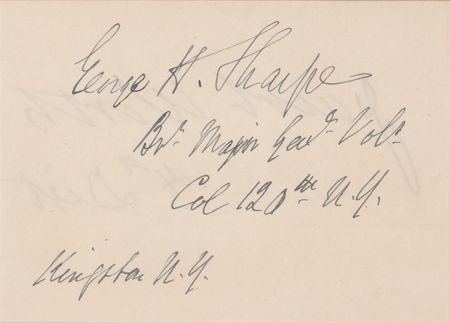 George H. Sharpe
Bvt. Major Genl. Vols
Col 120th N.Y.
Kingston N.Y.